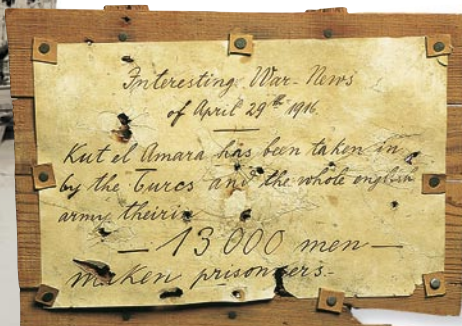 Interesting War-News
of April 29th 1916.
Kut el Amara has been taken in
by the Turcs and the whole english
army theirin
— 13000 men —
maken prisoners.-